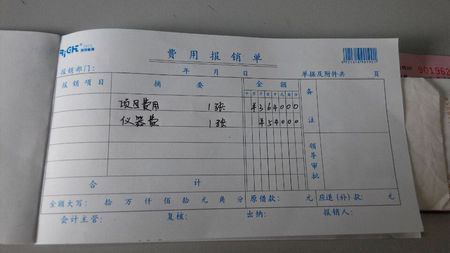 费用报销单
报销部门： 年 月 日 单据及附件共 页
报销项目 摘要 金额 备注
项目费用 1张 ¥364000
仪器费 1张 ¥54000
领导审批
合计
金额大写： 拾 万 仟 佰 拾 元 角 分 原借款： 元 应退（补）款： 元
会计主管： 复核： 出纳： 报销人：